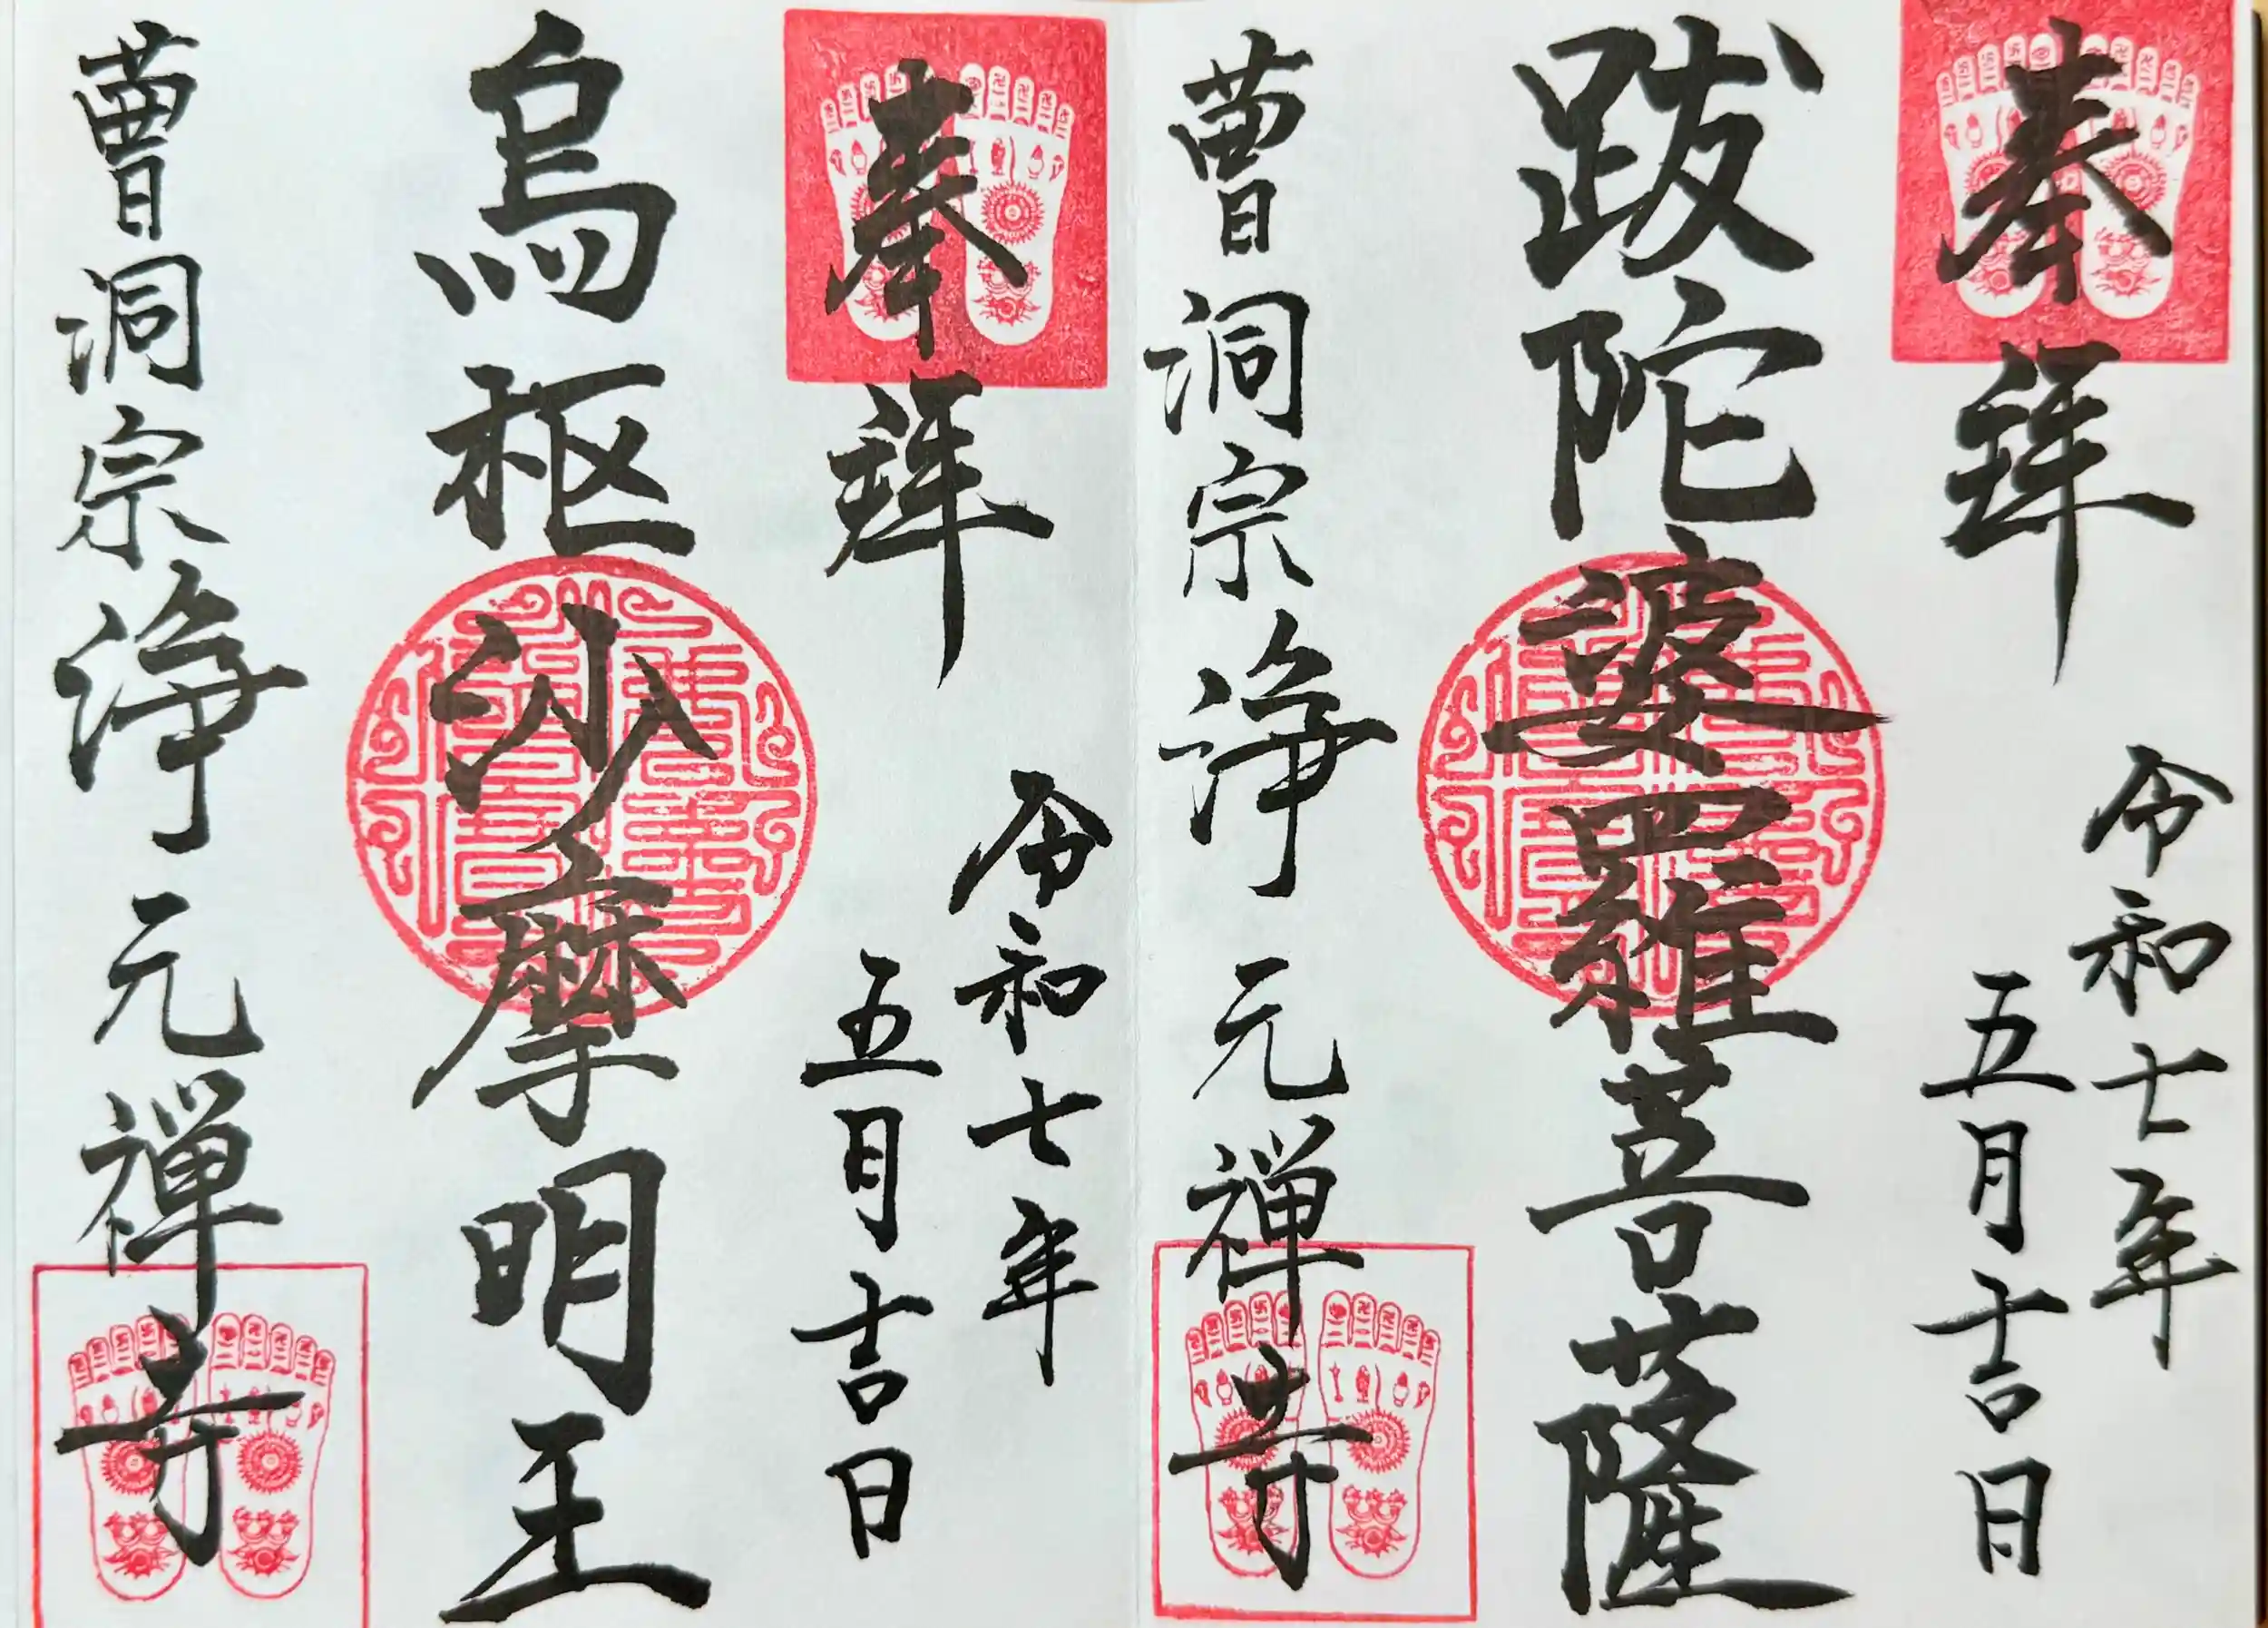 奉拜
令和七年
五月吉日
跋陀婆羅菩薩
曹洞宗浄元禅寺
奉拜
令和七年
五月吉日
烏枢沙摩明王
曹洞宗浄元禅寺